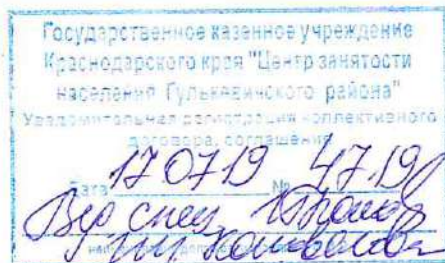 Государственное казенное учреждение
Краснодарского края "Центр занятости
населения Гулькевичского района"
Уведомительная регистрация коллективного
договора, соглашения
Дата 17 07 19 № 47.19
Вед спец